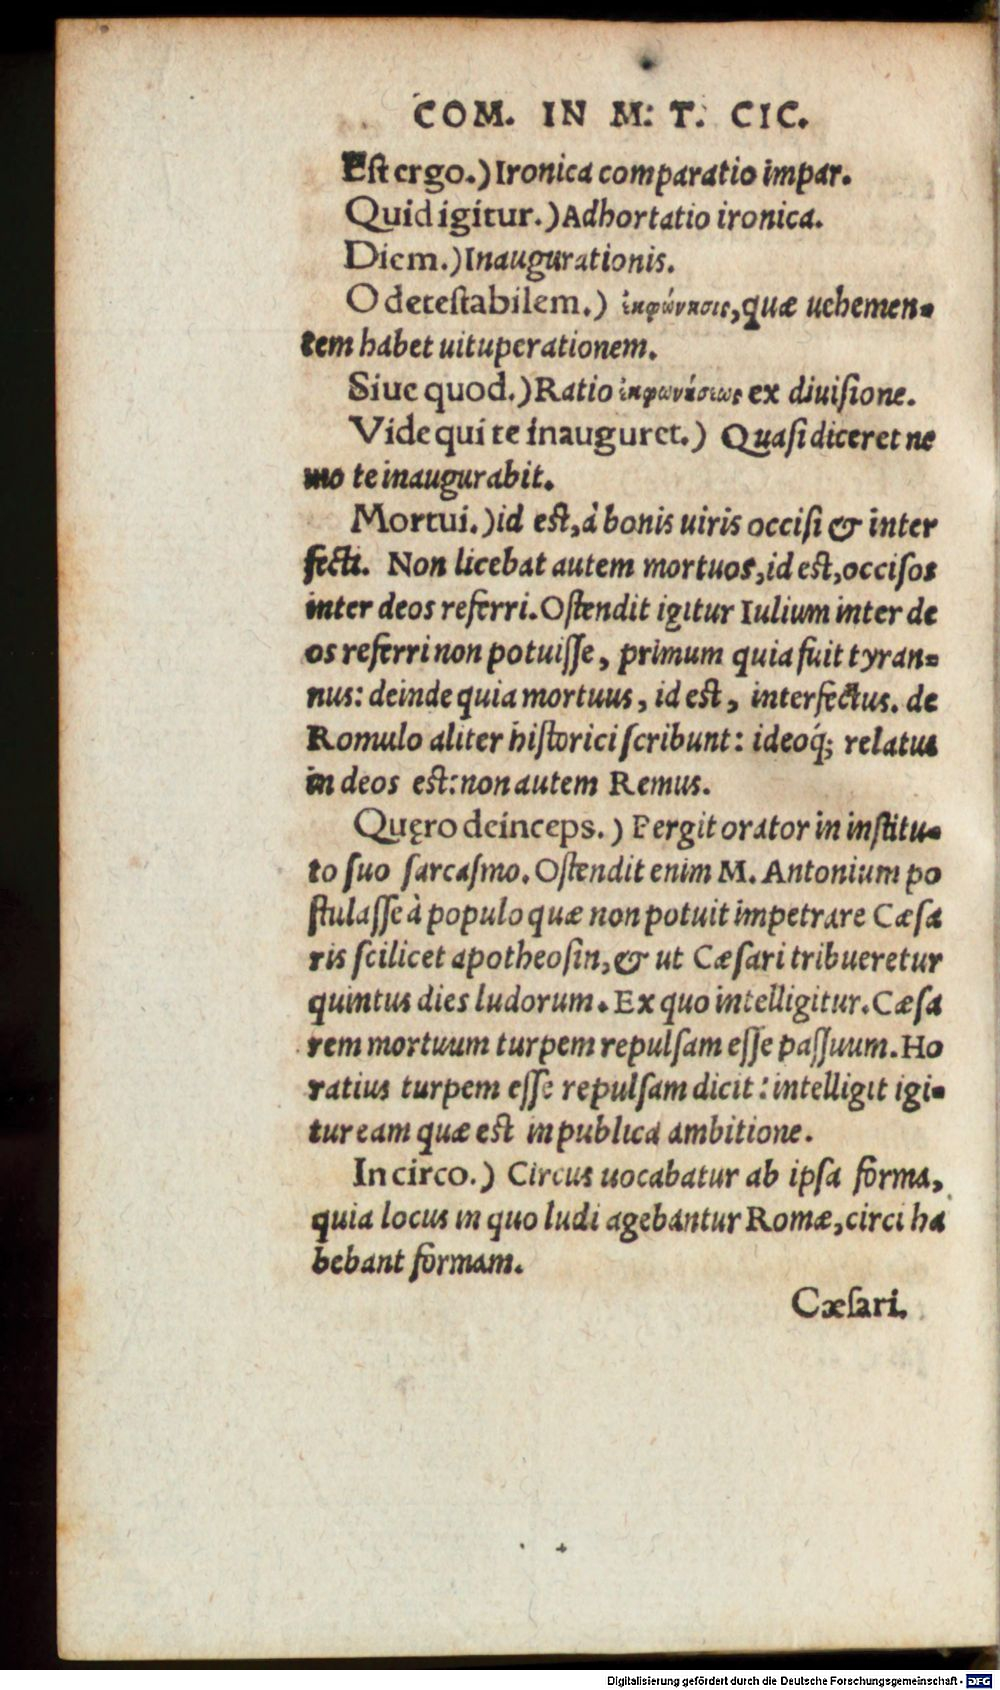 COM. IN M: T. CIC.
Est ergo.) Ironica comparatio impar.
Quid igitur.) Adhortatio ironica.
Diem.) Inaugurationis.
O detestabilem.) ἐκφώνησις, quæ uehemen-
tem habet uituperationem.
Siue quod.) Ratio ἐκφωνήσεως ex diuisione.
Vide qui te inauguret.) Quasi diceret ne
mo te inaugurabit.
Mortui.) id est, à bonis uiris occisi & inter
fecti. Non licebat autem mortuos, id est, occisos
inter deos referri. Ostendit igitur Iulium inter de
os referri non potuisse, primum quia fuit tyran-
nus: deinde quia mortuus, id est, interfectus. de
Romulo aliter historici scribunt: ideoq́; relatus
in deos est: non autem Remus.
Quęro deinceps.) Pergit orator in institu-
to suo sarcasmo. Ostendit enim M. Antonium po
stulasse à populo quæ non potuit impetrare Cæsa
ris scilicet apotheosin, & ut Cæsari tribueretur
quintus dies ludorum. Ex quo intelligitur. Cæsa
rem mortuum turpem repulsam esse passuum. Ho
ratius turpem esse repulsam dicit: intelligit igi-
tur eam quæ est in publica ambitione.
In circo.) Circus uocabatur ab ipsa forma,
quia locus in quo ludi agebantur Romæ, circi ha
bebant formam.
Cæsari.
Digitalisierung gefördert durch die Deutsche Forschungsgemeinschaft - DFG